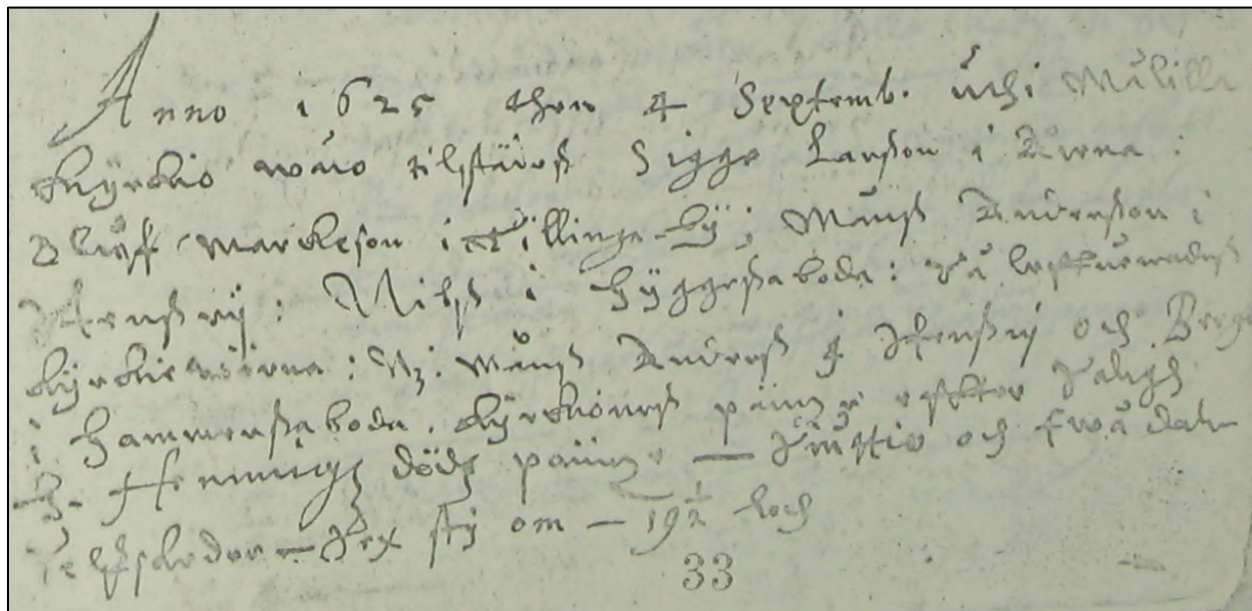 Anno 1625 then 4 Septemb. uthi Målilla
kyrkio wåro tilstädes Sigge Larson i Årena:
Oluff Markeson i Hillinge-by; Måns Anderson i
Flensry: Nils i Hyggesaboda: så lefwererades
kyrkiewärena: Nj. Måns Anders i Flensry och Birge
i Hammersaboda. kyrkiones päninge effter Saligh
H. Hennings dödz päninge — siuttio och twå daler
sölfskeder — Sex sty om — 19 1/2 lodh
33